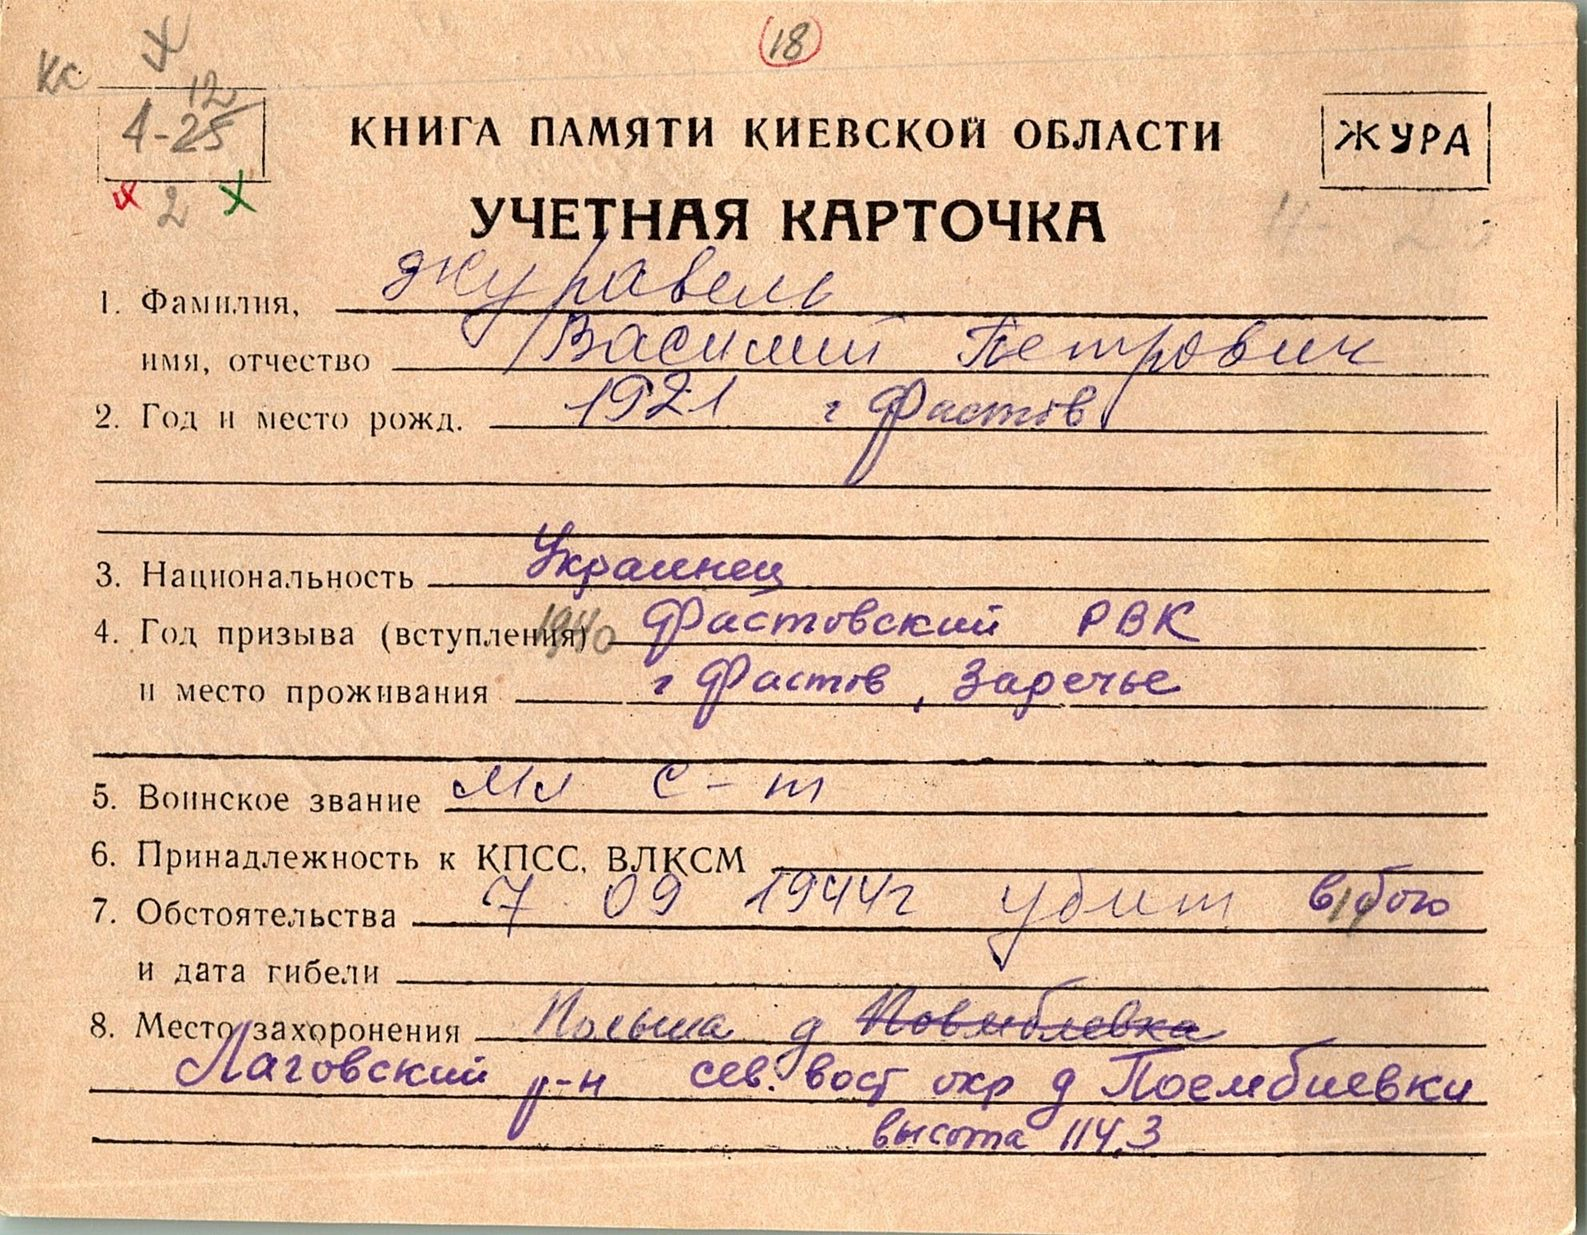 18
Кс
12
4-25
2
КНИГА ПАМЯТИ КИЕВСКОЙ ОБЛАСТИ
ЖУРА
УЧЕТНАЯ КАРТОЧКА
1. Фамилия, Журавель
имя, отчество Василий Петрович
2. Год и место рожд. 1921 г Фастов
3. Национальность Украинец
4. Год призыва (вступления) 1940 Фастовский РВК
и место проживания г Фастов, Заречье
5. Воинское звание мл с-т
6. Принадлежность к КПСС, ВЛКСМ
7. Обстоятельства 7 09 1944г убит в бою
и дата гибели
8. Место захоронения Польша д
Лаговский р-н сев. вост окр д Поембиевки
высота 114,3